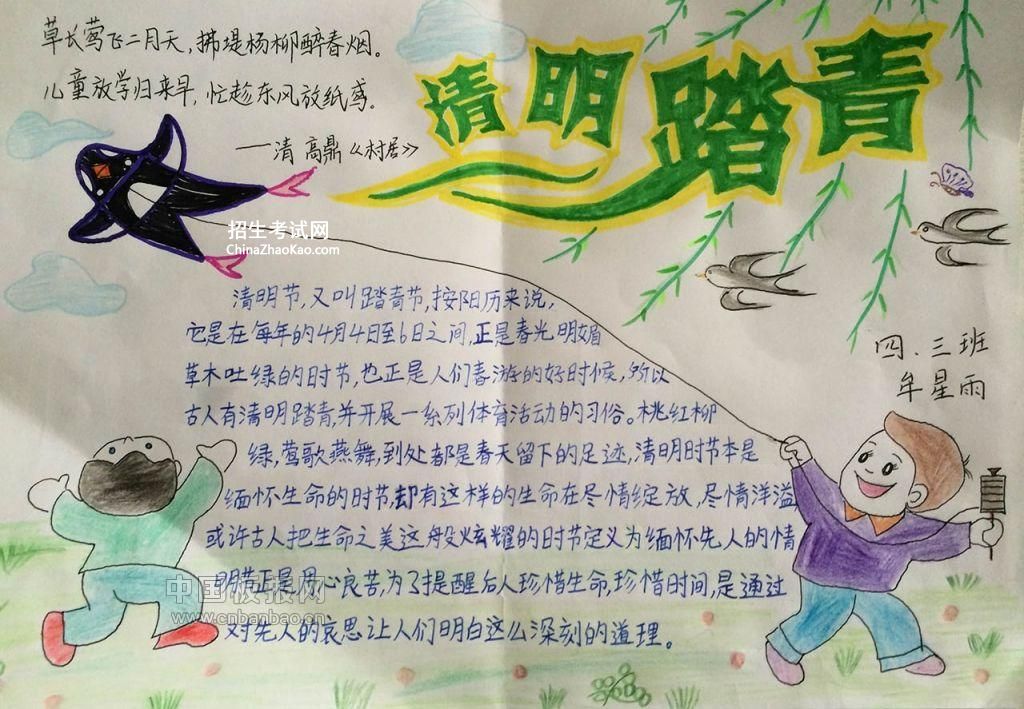 草长莺飞二月天，拂堤杨柳醉春烟。
儿童放学归来早，忙趁东风放纸鸢。
一清 高鼎《村居》
清明踏青
招生考试网
ChinaZhaoKao.com
清明节，又叫踏青节，按阳历来说，
它是在每年的4月4日至6日之间，正是春光明媚
草木吐绿的时节，也正是人们春游的好时候，所以
古人有清明踏青，并开展一系列体育活动的习俗。桃红柳
绿，莺歌燕舞，到处都是春天留下的足迹，清明时节本是
缅怀生命的时节，却有这样的生命在尽情绽放，尽情洋溢
或许古人把生命之美这般炫耀的时节定义为缅怀先人的情
明节正是用心良苦，为了提醒后人珍惜生命，珍惜时间，是通过
对先人的哀思让人们明白这么深刻的道理。
四、三班
牟星雨
中国板报网
www.cnbanbao.cn